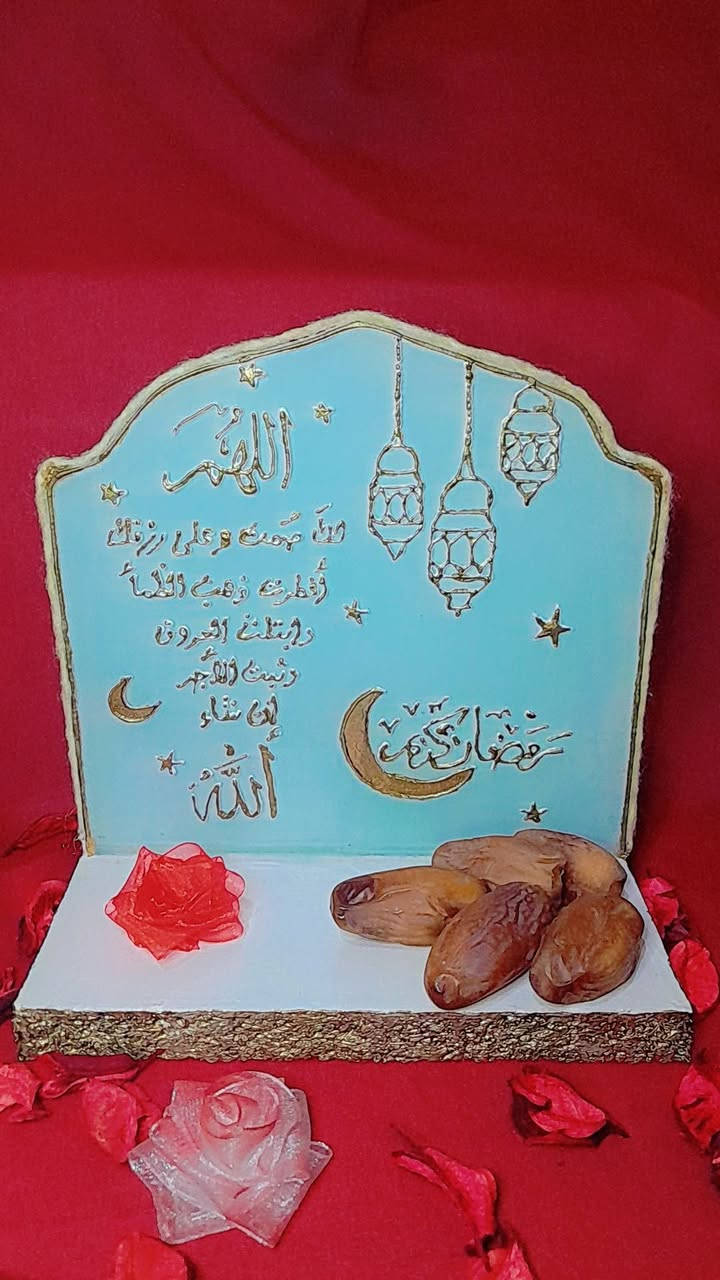 اللهُمَّ
لكَ صُمت وعلى رزقك
أفطرت ذهب الظمأ
وابتلت العروق
وثبت الأجر
إن شاء
اللَّهُ
رَمَضَان كَرِيم